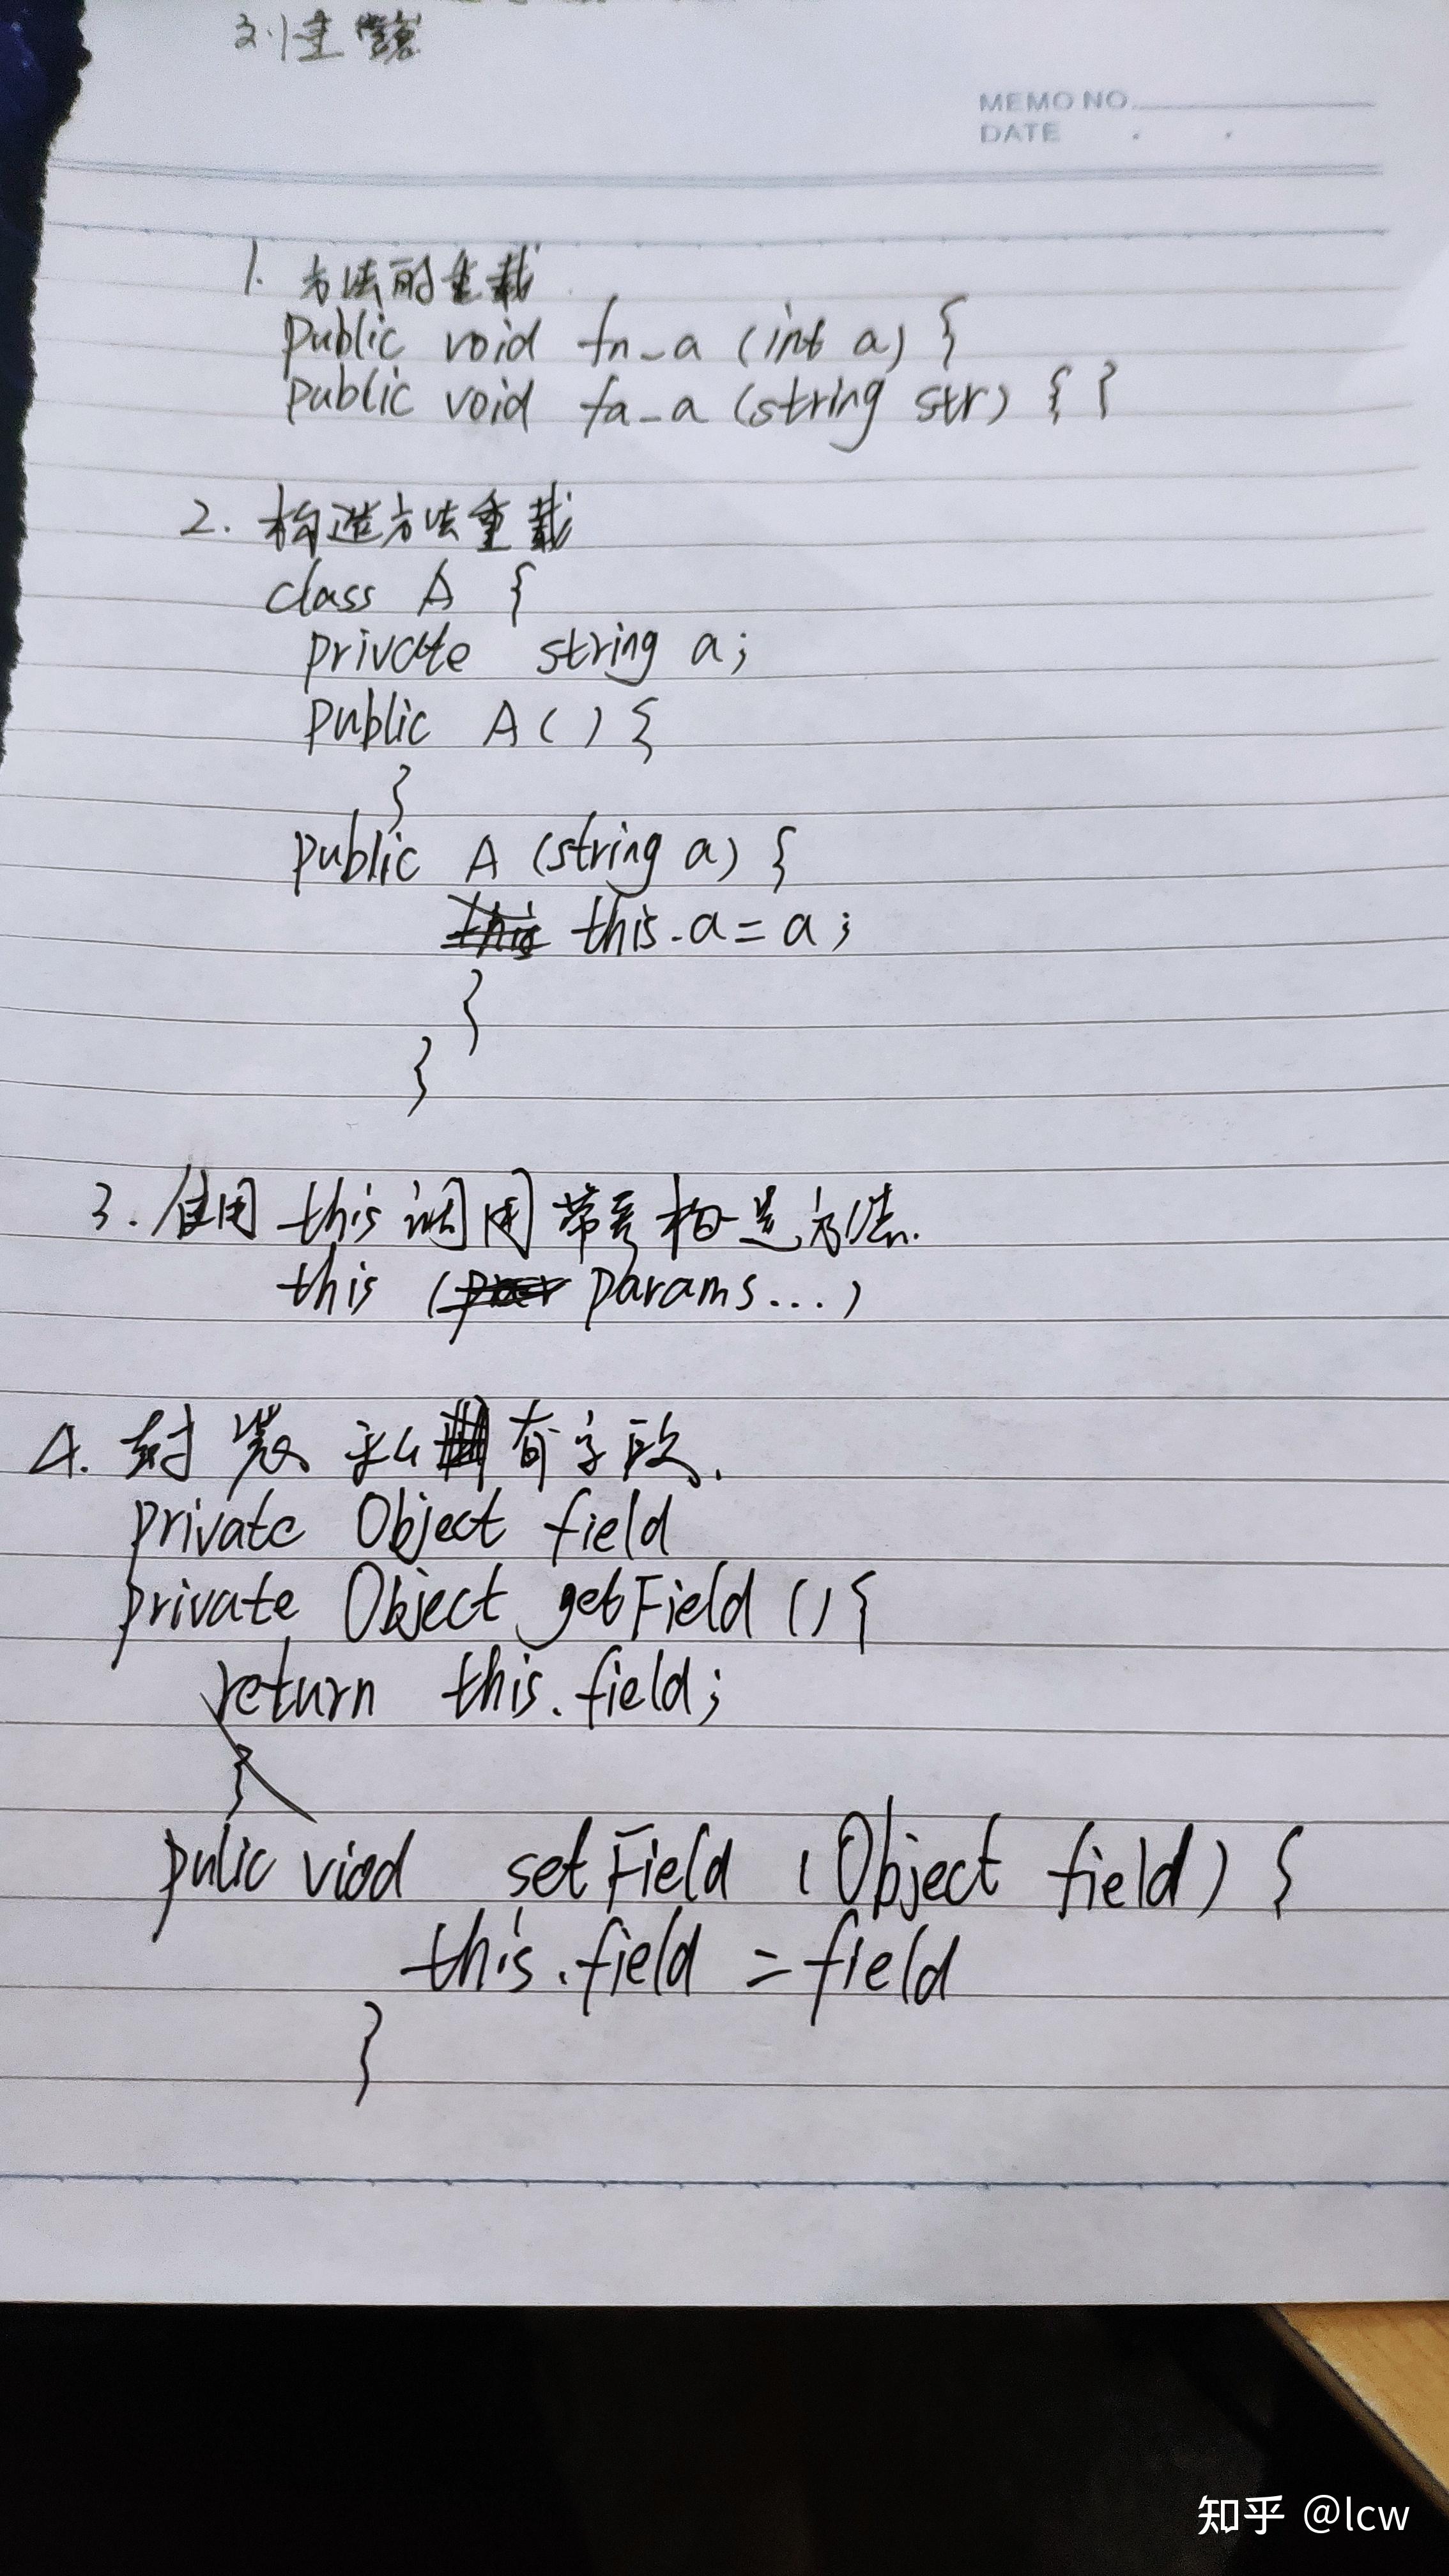 MEMO NO.
DATE
1. 方法的重载
public void fn_a (int a) {
public void fa_a (string str) { }
2. 构造方法重载
class A {
private string a;
public A() {
}
public A (string a) {
this.a = a;
}
}
3. 使用 this 调用带参构造方法.
this (params...)
4. 封装私有字段.
private Object field
private Object getField () {
return this.field;
}
pulic viod setField (Object field) {
this.field = field
}
知乎 @lcw